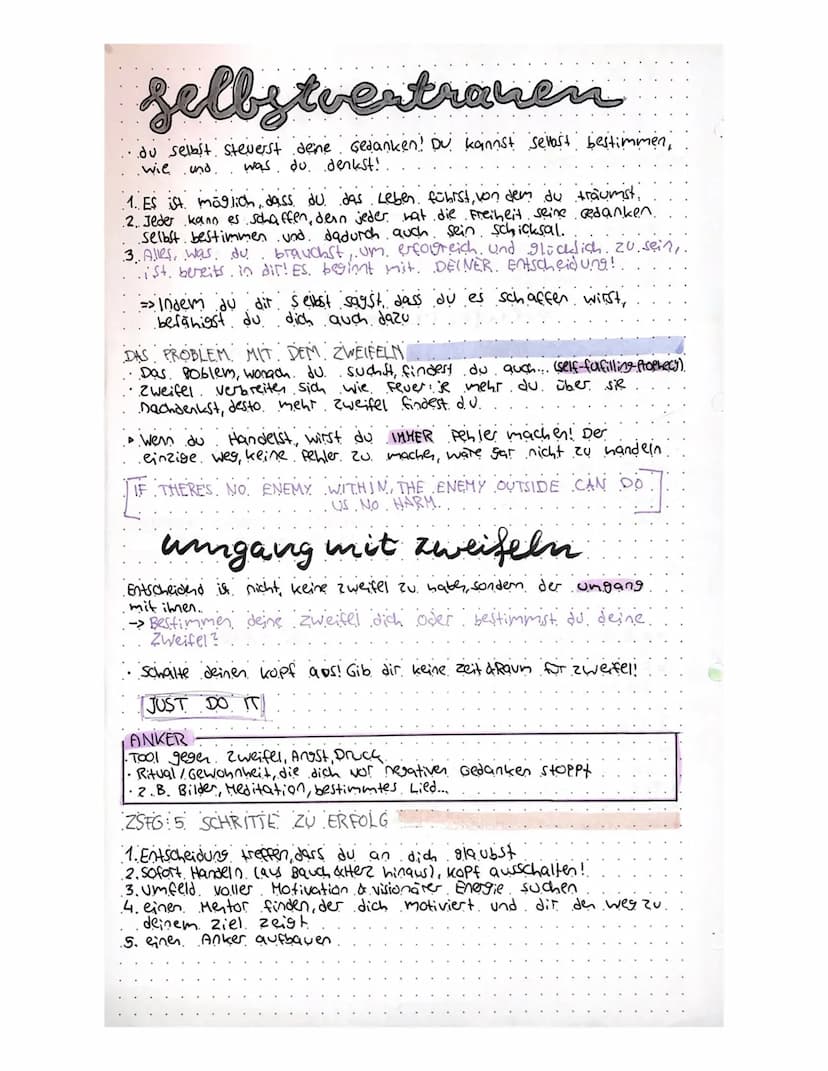 selbstvertrauen
· du selbst steuerst deine Gedanken! Du kannst selbst bestimmen,
wie und was du denkst!
1. ES ist möglich, dass du das Leben führst, von dem du träumst.
2. Jeder kann es schaffen, denn jeder hat die Freiheit seine Gedanken
selbst bestimmen und dadurch auch sein Schicksal.
3. Alles, was du brauchst, um erfolgreich und glücklich zu sein,
ist bereits in dir! ES beginnt mit DEINER Entscheidung!
=> Indem du dir selbst sagst, dass du es schaffen wirst,
befähigst du dich auch dazu
DAS PROBLEM MIT DEM ZWEIFELN
· Das Poblem, wonach du suchst, findest du auch... (self-fulfilling-Prophecy)
· Zweifel verbreiten sich wie Feuer: je mehr du über sie
nachdenkst, desto mehr Zweifel findest du
▸ Wenn du Handelst, wirst du IMMER Fehler machen! Der
einzige Weg, keine Fehler zu machen, wäre gar nicht zu handeln
[IF THERE'S NO ENEMY WITHIN, THE ENEMY OUTSIDE CAN DO
US NO HARM.]
umgang mit zweifeln
Entscheidend ist nicht, keine Zweifel zu haben, sondern der umgang
mit ihnen.
-> Bestimmen deine Zweifel dich oder bestimmst du deine
Zweifel?
· Schalte deinen Kopf aus! Gib dir keine Zeit & Raum für Zweifel!
JUST DO IT
ANKER
· Tool gegen Zweifel, Angst, Druck
· Ritual/Gewohnheit, die dich vor negativen Gedanken stoppt
· z.B. Bilder, Meditation, bestimmtes Lied...
ZSFG: 5 SCHRITTE ZU ERFOLG
1. Entscheidung treffen, dass du an dich glaubst
2. Sofort Handeln (aus Bauch & Herz hinaus), Kopf ausschalten!
3. Umfeld voller Motivation & visionärer Energie suchen
4. einen Mentor finden, der dich motiviert und dir den Weg zu
deinem Ziel zeigt
5. einen Anker aufbauen